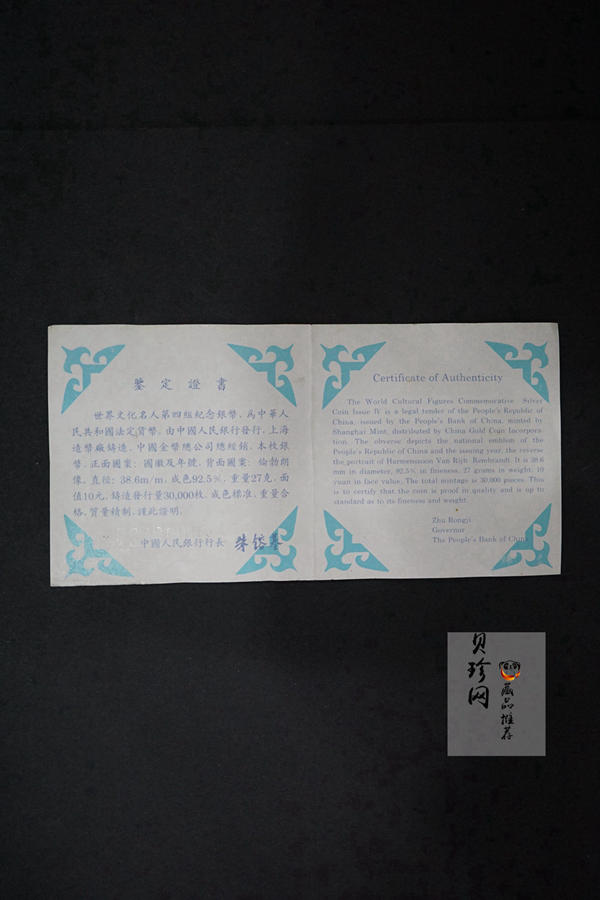 鉴定證書
世界文化名人第四組紀念銀幣，為中華人
民共和國法定貨幣，由中國人民銀行發行，上海
造幣廠鑄造，中國金幣總公司總經銷。本枚銀
幣，正面圖案：國徽及年號，背面圖案：倫勃朗
像，直徑：38.6m/m，成色92.5%，重量27克，面
值10元，鑄造發行量30,000枚。成色標准，重量合
格，質量精制，謹此證明。
中國人民銀行行長 朱镕基
Certificate of Authenticity
The World Cultural Figures Commemorative Silver
Coin Issue Ⅳ is a legal tender of the People's Republic of
China, issued by the People's Bank of China, minted by
Shanghai Mint, distributed by China Gold Coin Incorpora-
tion. The obverse depicts the national emblem of the
People's Republic of China and the issuing year, the reverse
the portrait of Harmenszoon Van Rijh Rembrandt. It is 38.6
mm in diameter, 92.5% in fineness, 27 grams in weight, 10
yuan in face value. The total mintage is 30,000 pieces. This
is to certify that the coin is proof in quality and is up to
standard as to its fineness and weight.
Zhu Rongji
Governor
The People's Bank of China
贝珍网
藏品推荐